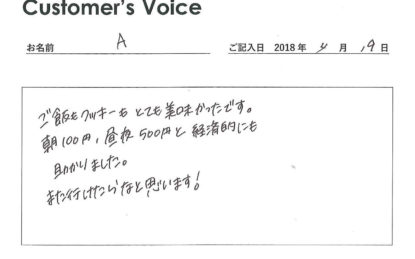 Customer's Voice
お名前 A ご記入日 2018年 4月 19日
ご飯もクッキーもとても美味かったです。
朝100円，昼夜500円と経済的にも
助かりました。
また行けたらなと思います！